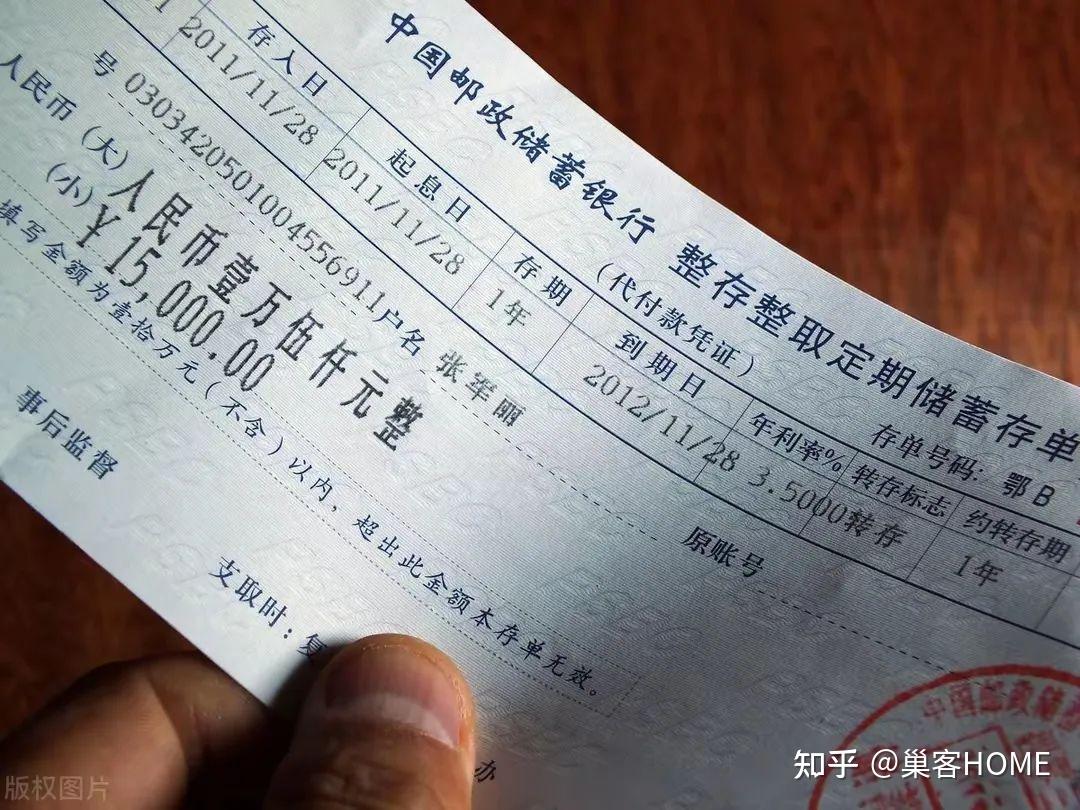 中国邮政储蓄银行 整存整取定期储蓄存单
(代付款凭证)
存单号码: 鄂B
存入日 起息日 存期 到期日 年利率% 转存标志 约转存期
2011/11/28 2011/11/28 1年 2012/11/28 3.5000 转存 1年
号 030342050100455691 1 户名 张军丽 原账号
人民币 (大) 人民币壹万伍仟元整
(小) ¥15,000.00
填写金额为壹拾万元(不含)以内,超出此金额本存单无效。
事后监督
支取时: 复
办
中国邮政储蓄
知乎 @巢客HOME
版权图片